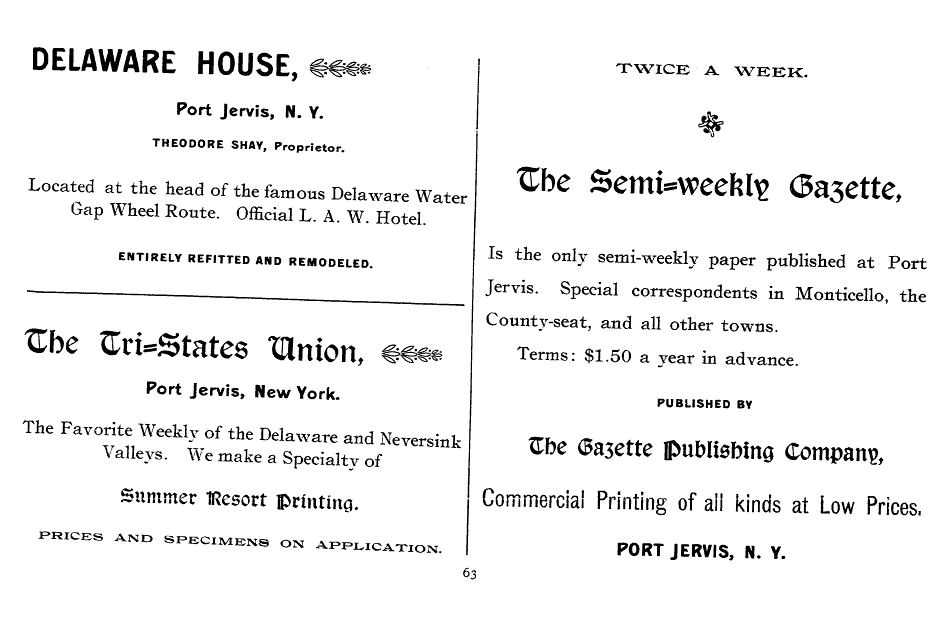 DELAWARE HOUSE,
Port Jervis, N. Y.
THEODORE SHAY, Proprietor.
Located at the head of the famous Delaware Water
Gap Wheel Route. Official L. A. W. Hotel.
ENTIRELY REFITTED AND REMODELED.
The Tri=States Union,
Port Jervis, New York.
The Favorite Weekly of the Delaware and Neversink
Valleys. We make a Specialty of
Summer Resort Printing.
PRICES AND SPECIMENS ON APPLICATION.
TWICE A WEEK.
The Semi=weekly Gazette,
Is the only semi-weekly paper published at Port
Jervis. Special correspondents in Monticello, the
County-seat, and all other towns.
Terms: $1.50 a year in advance.
PUBLISHED BY
The Gazette Publishing Company,
Commercial Printing of all kinds at Low Prices.
PORT JERVIS, N. Y.
63